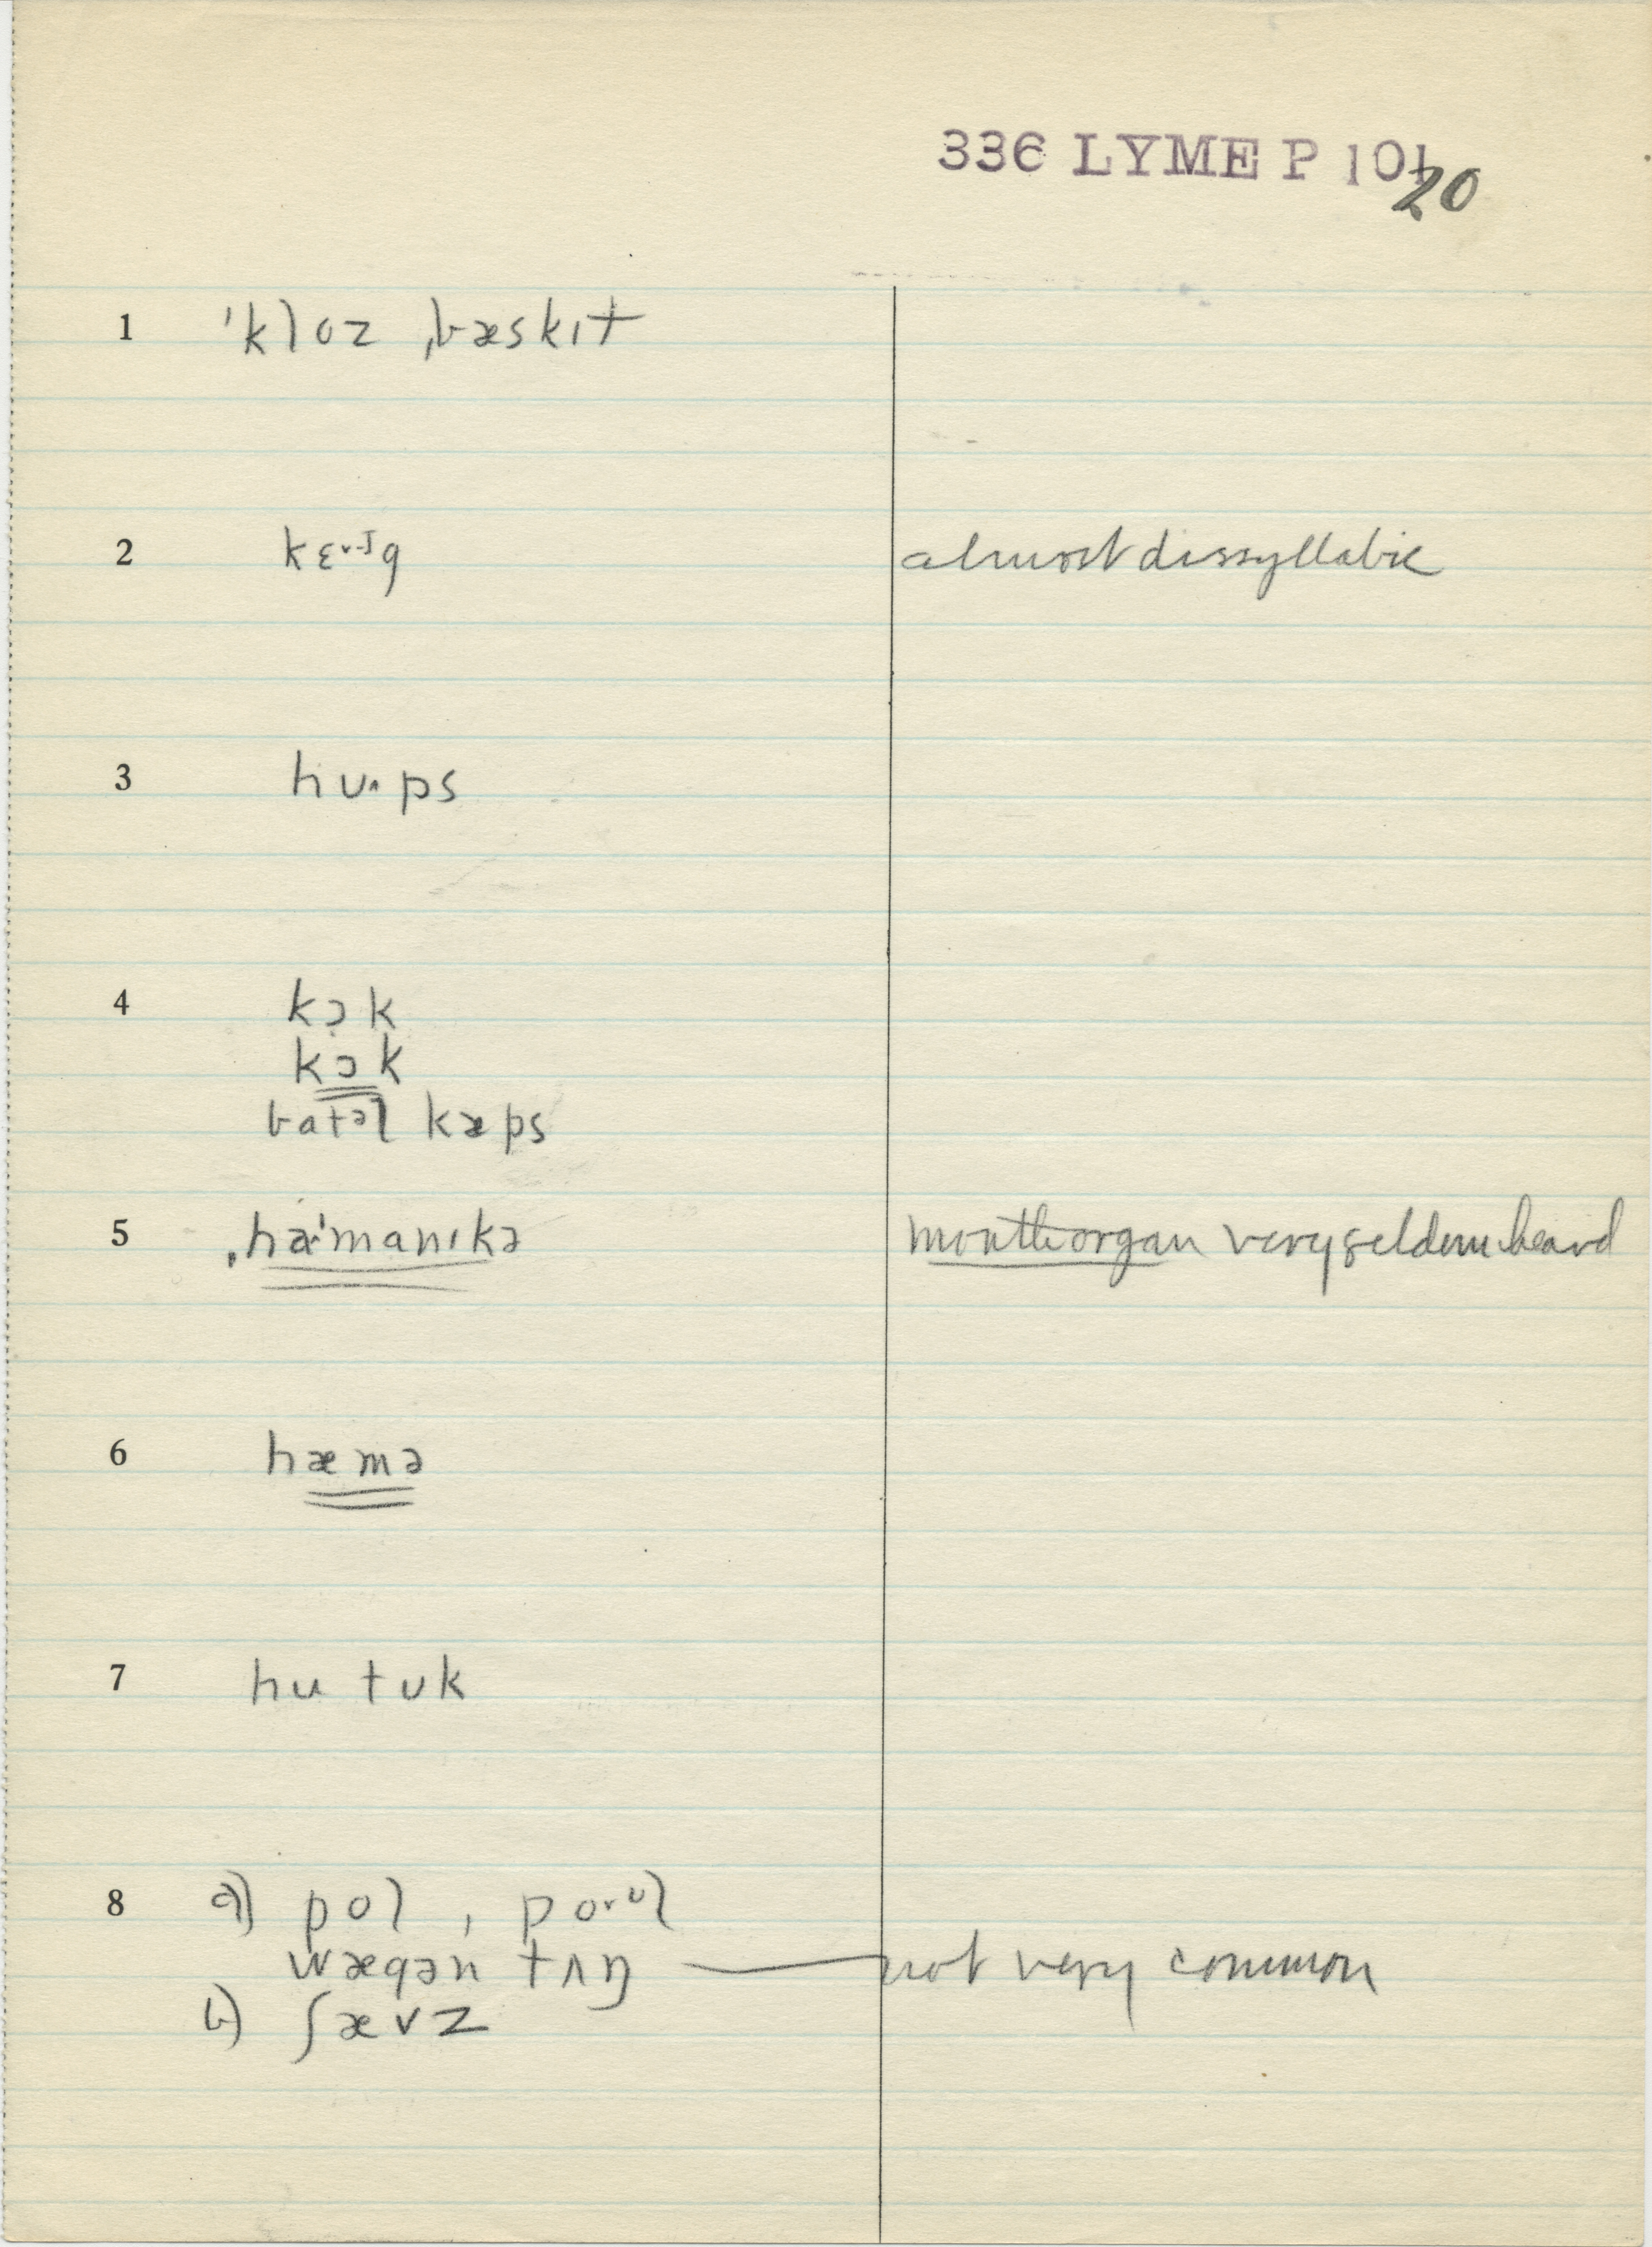 336 LYME P 101
20
1 ˈkloz ˌbæskɪt
2 kɛ˅˗ɪg almost dissyllabic
3 hʊ˄ps
4 kɔ̣k
kɔk
batəl kæps
5 ˌhaˈmanɪkə mouth organ very seldom heard
6 hæmə
7 hu tʊk
8 a) pol , po˅ᶷl
wægən tʌŋ — not very common
b) ʃævz